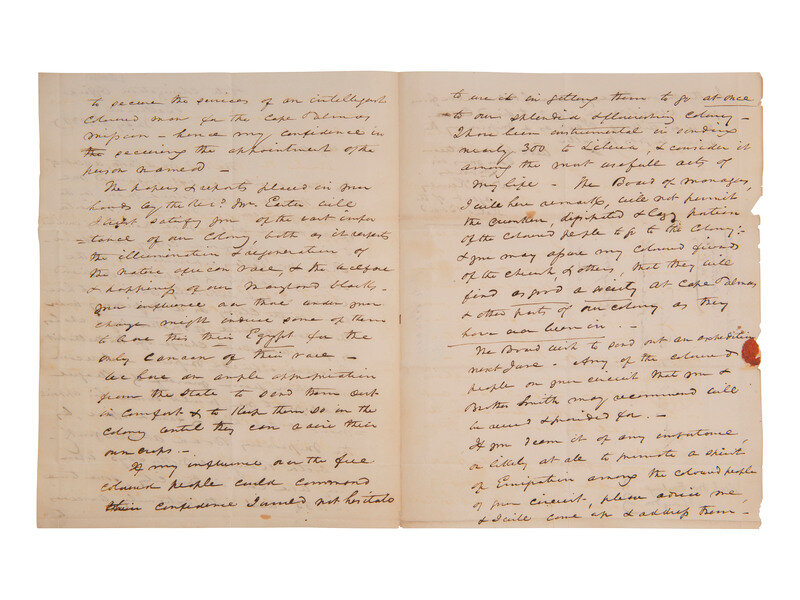 to secure the services of an intelligent
coloured man for the Cape Palmas
mission - hence my confidence in
the securing the appointment of the
person named -
The papers & reports placed in your
hands by the Revd Mr. Easter will
I trust satisfy you of the vast impor
-tance of our Colony, both as it respects
the illumination & regeneration of
the native african race & the welfare
& happiness of our Maryland blacks.
Your influence over those under your
charge might induce some of them
to leave this their Egypt for the
only Canaan of their race -
We have an ample appropriation
from the State to send them out
in comfort & to keep them so in the
colony until they can raise their
own crops -
If my influence over the free
coloured people could command
their confidence I would not hesitate
to use it in getting them to go at once
to our splendid & flourishing colony -
I have been instrumental in sending
nearly 300 to Liberia, & consider it
among the most usefull acts of
my life - The Board of managers,
I will here remark, will not permit
the drunken, disipated & lazy portion
of the coloured people to go to the Colony -
& you may assure my coloured friends
of the church & others, that they will
find as good a society at Cape Palmas
& other parts of our colony as they
have ever been in. -
The Board wish to send out an expedition
next June - Any of the coloured
people on your circuit that you &
Brother Smith may recommend will
be received & provided for. -
If you deem it of any importance,
or likely at all to promote a spirit
of Emigration among the coloured people
of your circuit, please advise me,
& I will come up & address them -